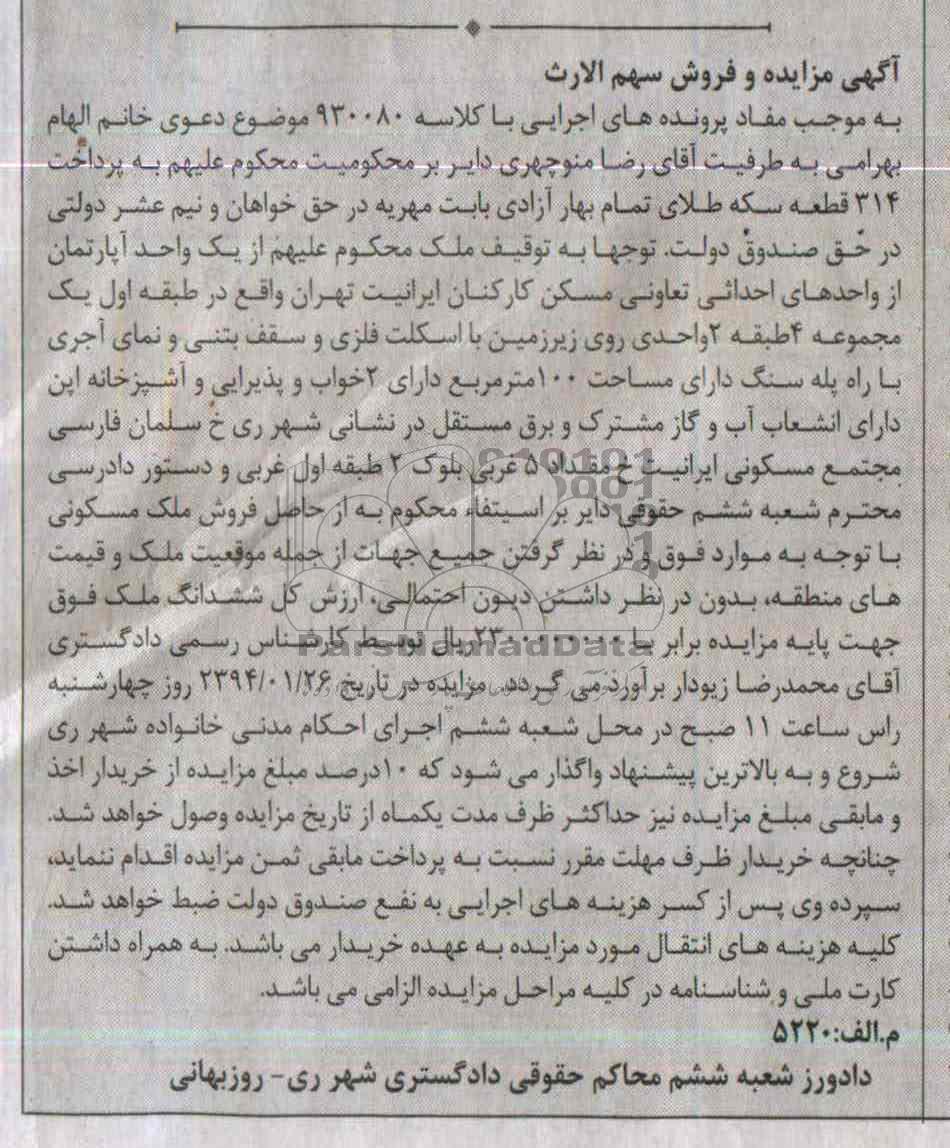 آگهی مزایده و فروش سهم الارث
به موجب مفاد پرونده های اجرایی با کلاسه ۹۳۰۰۸۰ موضوع دعوی خانم الهام
بهرامی به طرفیت آقای رضا منوچهری دایر بر محکومیت محکوم علیهم به پرداخت
۳۱۴ قطعه سکه طلای تمام بهار آزادی بابت مهریه در حق خواهان و نیم عشر دولتی
در حق صندوق دولت. توجها به توقیف ملک محکوم علیهم از یک واحد آپارتمان
از واحدهای احداثی تعاونی مسکن کارکنان ایرانیت تهران واقع در طبقه اول یک
مجموعه ۴طبقه ۲واحدی روی زیرزمین با اسکلت فلزی و سقف بتنی و نمای آجری
با راه پله سنگ دارای مساحت ۱۰۰مترمربع دارای ۲خواب و پذیرایی و آشپزخانه اپن
دارای انشعاب آب و گاز مشترک و برق مستقل در نشانی شهر ری خ سلمان فارسی
مجتمع مسکونی ایرانیت خ مقداد ۵ غربی بلوک ۲ طبقه اول غربی و دستور دادرسی
محترم شعبه ششم حقوقی دایر بر استیفاء محکوم به از حاصل فروش ملک مسکونی
با توجه به موارد فوق و در نظر گرفتن جمیع جهات از جمله موقعیت ملک و قیمت
های منطقه، بدون در نظر داشتن دیون احتمالی، ارزش کل ششدانگ ملک فوق
جهت پایه مزایده برابر با ریال توسط کارشناس رسمی دادگستری
آقای محمدرضا زیودار برآورد می گردد. مزایده در تاریخ ۲۳۹۴/۰۱/۲۶ روز چهارشنبه
راس ساعت ۱۱ صبح در محل شعبه ششم اجرای احکام مدنی خانواده شهر ری
شروع و به بالاترین پیشنهاد واگذار می شود که ۱۰درصد مبلغ مزایده از خریدار اخذ
و مابقی مبلغ مزایده نیز حداکثر ظرف مدت یکماه از تاریخ مزایده وصول خواهد شد.
چنانچه خریدار ظرف مهلت مقرر نسبت به پرداخت مابقی ثمن مزایده اقدام ننماید،
سپرده وی پس از کسر هزینه های اجرایی به نفع صندوق دولت ضبط خواهد شد.
کلیه هزینه های انتقال مورد مزایده به عهده خریدار می باشد. به همراه داشتن
کارت ملی و شناسنامه در کلیه مراحل مزایده الزامی می باشد.
م.الف:۵۲۲۰
دادورز شعبه ششم محاکم حقوقی دادگستری شهر ری- روزبهانی
ParsNamadData